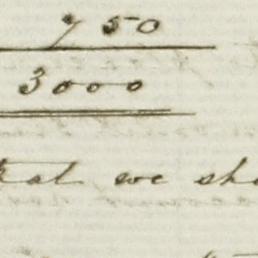 750
3000
that we sha